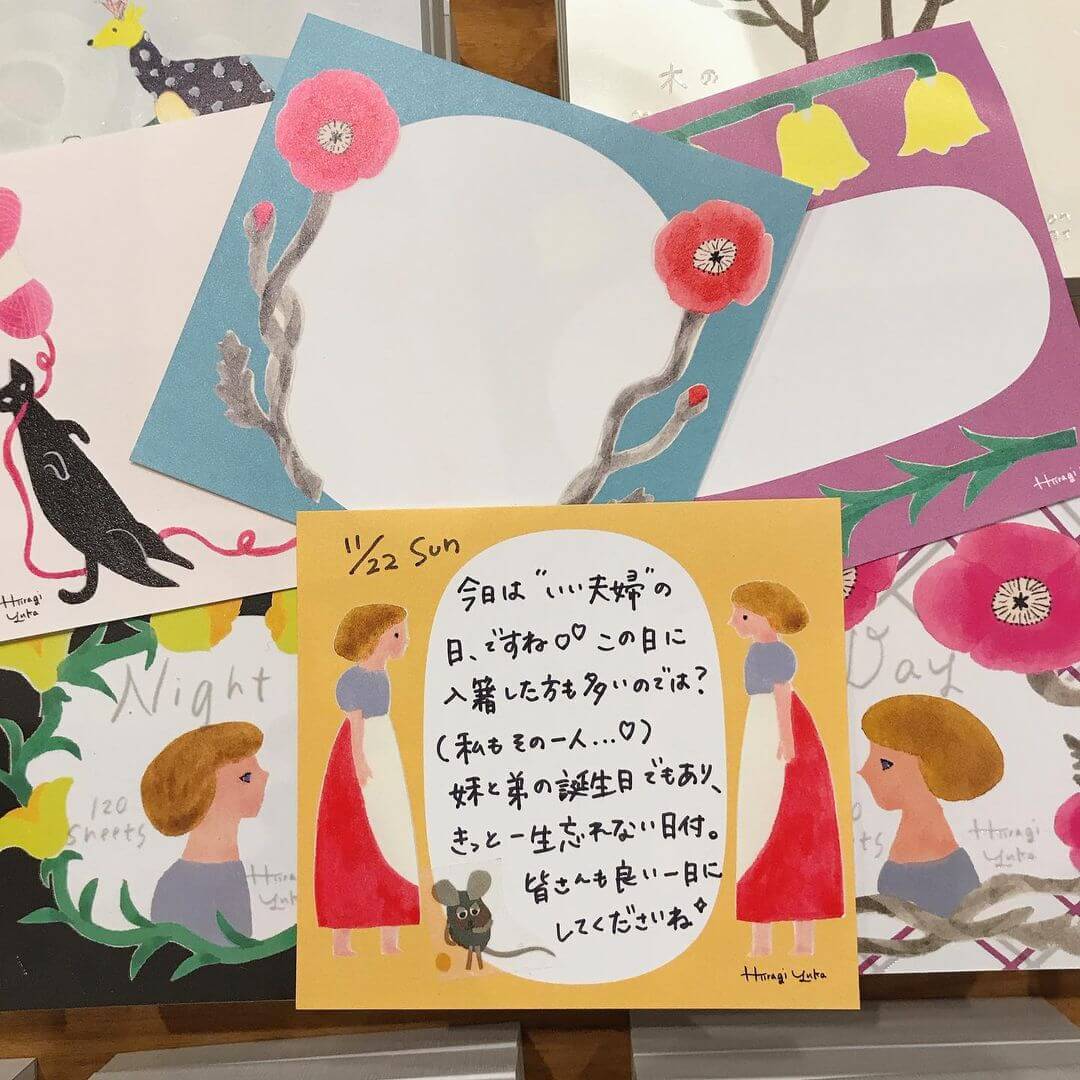 木の
Hiiragi
Hiiragi
Yuka
Night
120
sheets
Hiiragi
Yuka
11/22 Sun
今日は"いい夫婦"の
日、ですね♡♡ この日に
入籍した方も多いのでは?
(私もその一人…♡)
妹と弟の誕生日でもあり、
きっと一生忘れない日付。
皆さんも良い一日に
してくださいね✧
Hiiragi Yuka
Day
Hiiragi
Yuka